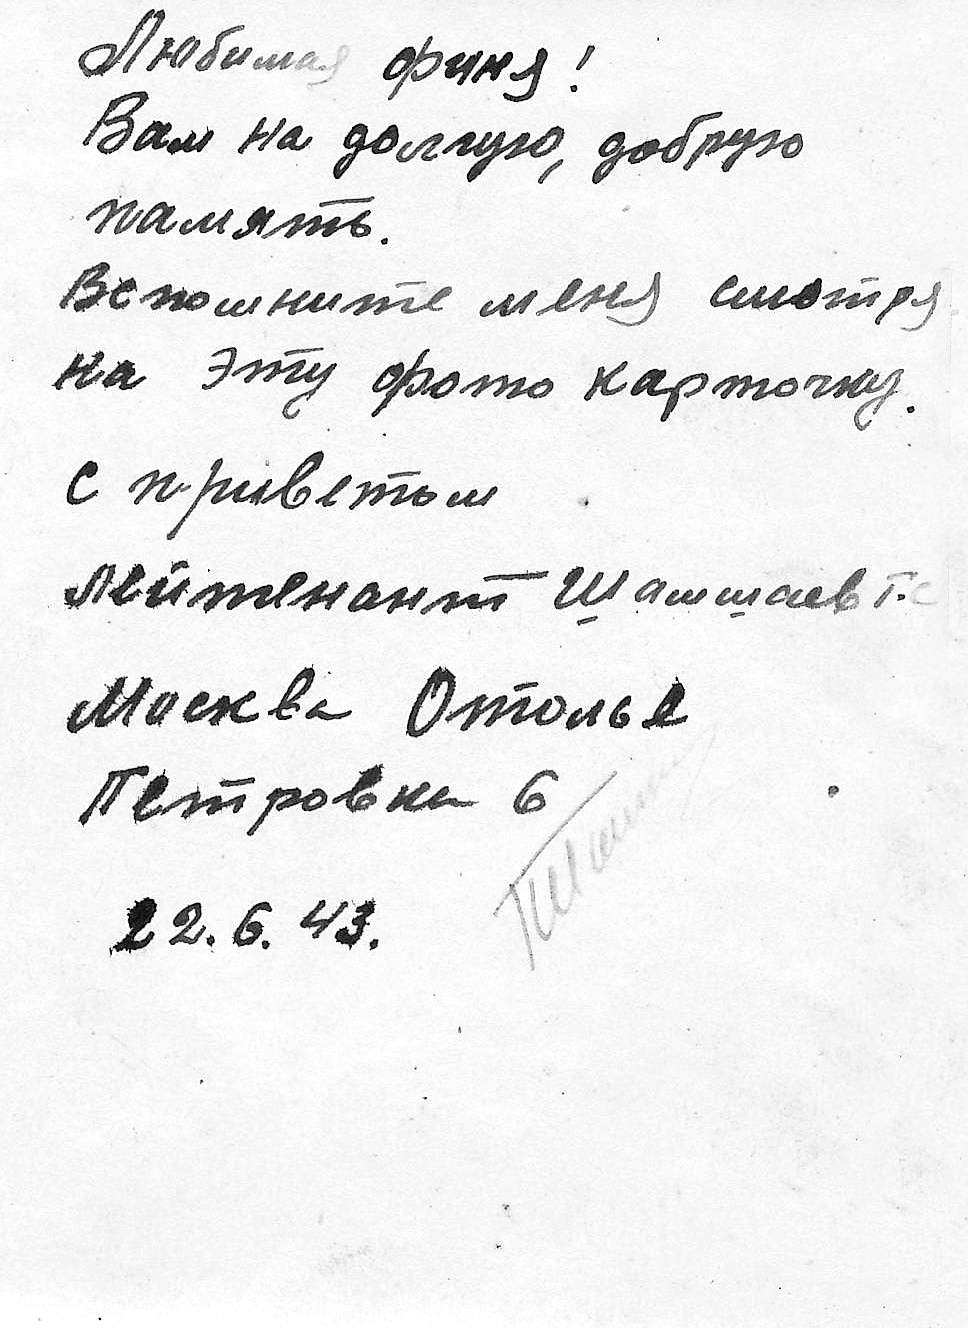 Любимая Финя!
Вам на долгую, добрую
память.
Вспомните меня смотря
на эту фото карточку.
С приветом
лейтенант Шамшаев Г.С
Москва Отолье
Петровка 6
22.6.43.